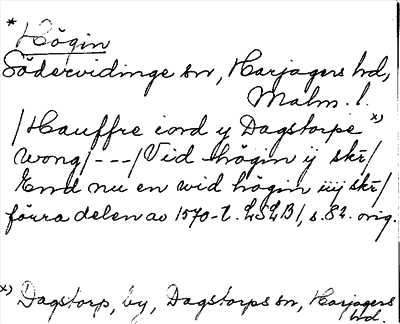 * Högin
Södervidinge sn, Harjagers hd,
Malm. l.
/Hauffre iord y Dagstorpe x)
wong/---/Vid högin ij skr/
End nu en wid högin iiij skr/
förra delen av 1570-t. LSLB1, s. 82. orig.
x) Dagstorp, by, Dagstorps sn, Harjagers
hd.